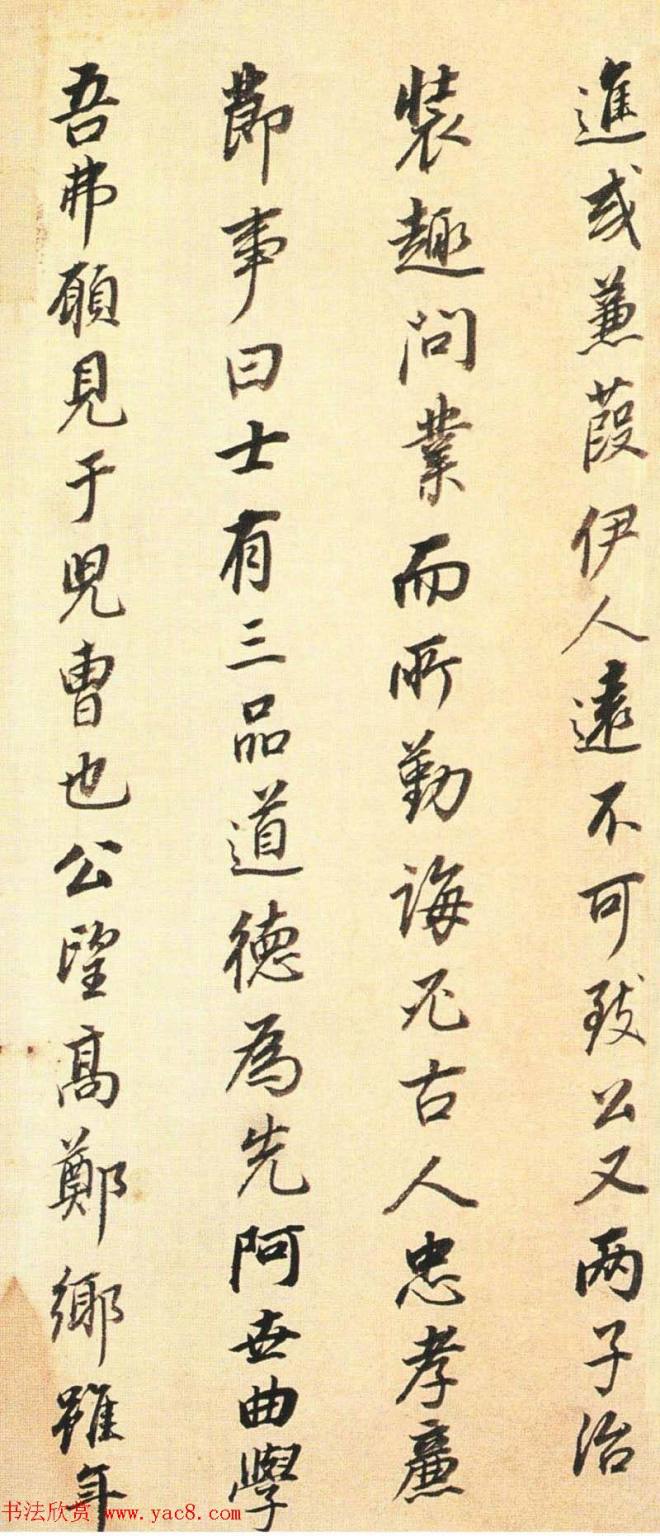 進或蒹葭伊人遠不可致公又两子治
裝趣問業而所勤誨凡古人忠孝廉
節事曰士有三品道德為先阿世曲學
吾弗願見于兒曹也公望高鄭鄉雖年
书法欣赏 www.yac8.com